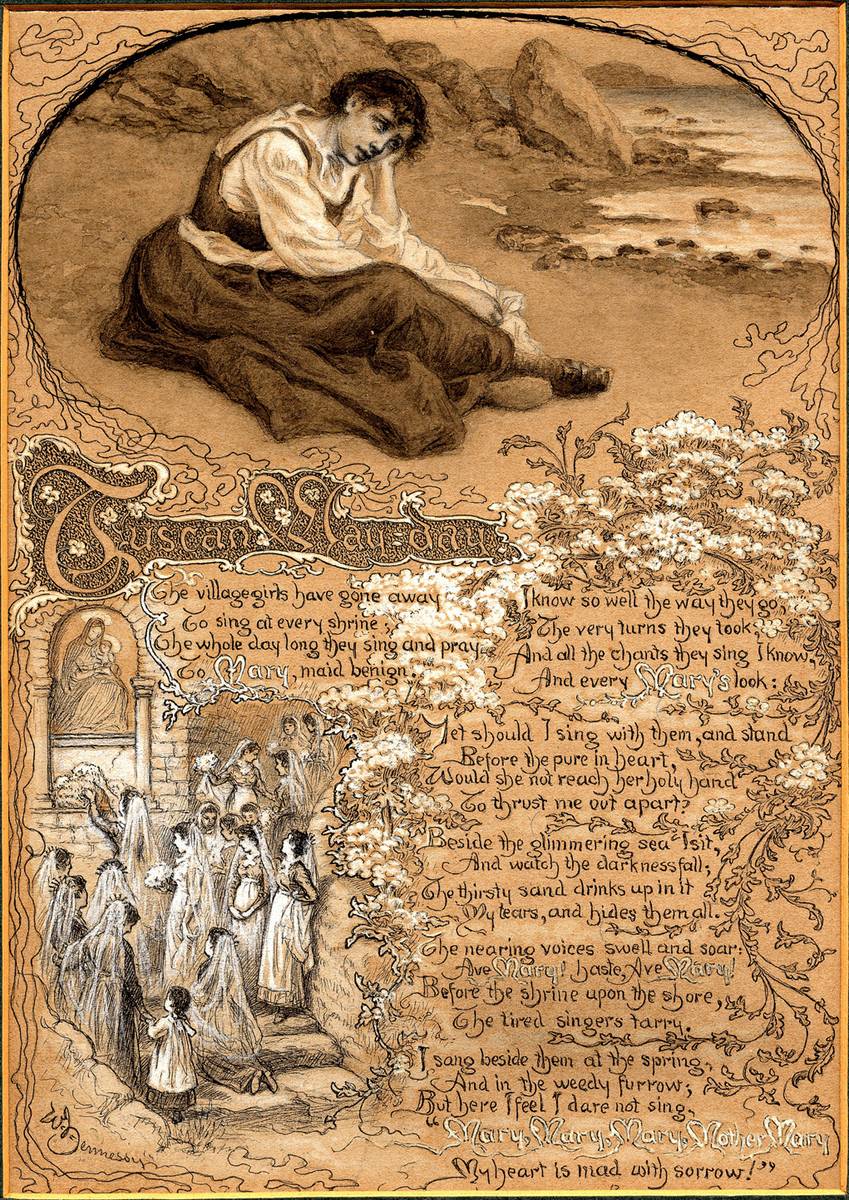 Tuscan May-day.
The village girls have gone away
To sing at every shrine;
The whole day long they sing and pray
To Mary, maid benign.
I know so well the way they go,
The very turns they took;
And all the chants they sing I know,
And every Mary's look:
Yet should I sing with them, and stand
Before the pure in heart,
Would she not reach her holy hand
To thrust me out apart?
Beside the glimmering sea I sit,
And watch the darkness fall;
The thirsty sand drinks up in it
My tears, and hides them all.
The nearing voices swell and soar:
Ave Mary! haste, Ave Mary!
Before the shrine upon the shore,
The tired singers tarry.
I sang beside them at the spring,
And in the weedy furrow;
But here I feel I dare not sing,
"Mary, Mary, Mary, Mother Mary
My heart is mad with sorrow!"
W.J. Hennessy